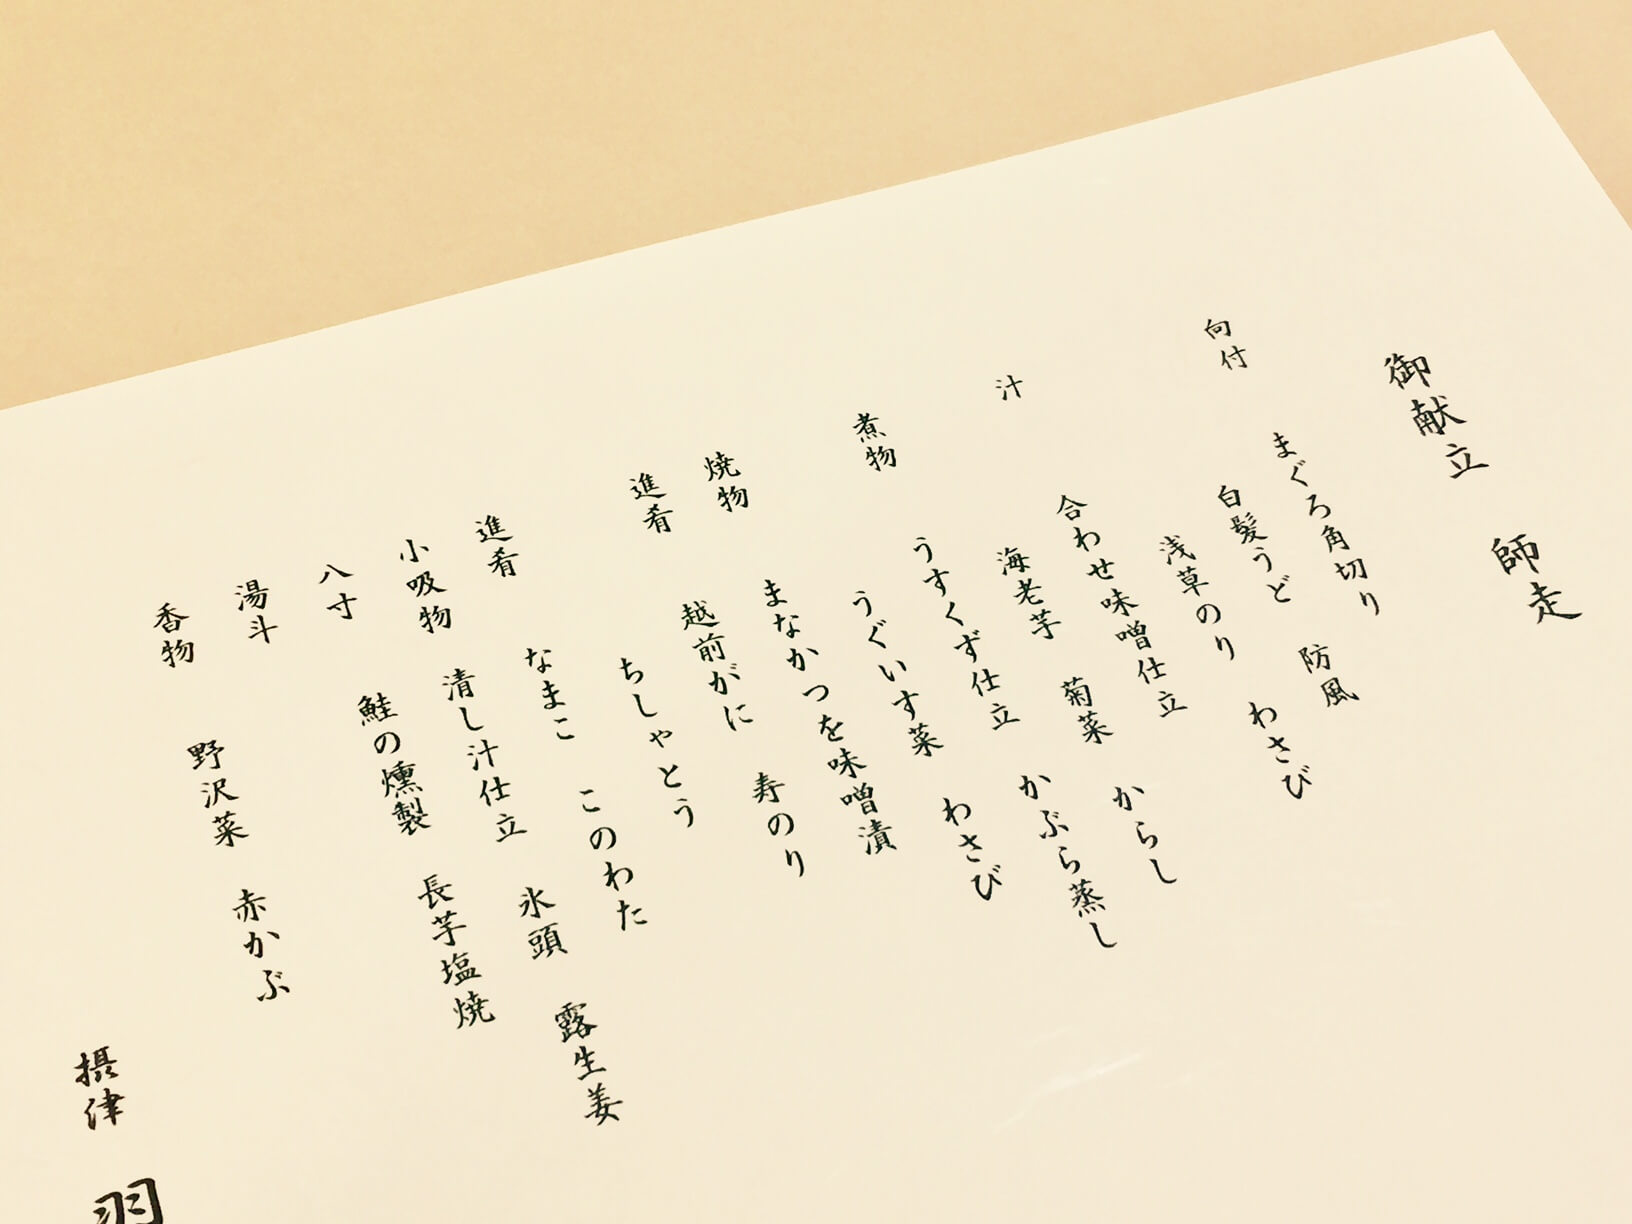 御献立 師走
向付 まぐろ角切り
白髪うど 防風
浅草のり わさび
汁 合わせ味噌仕立
海老芋 菊菜 からし
煮物 うすくず仕立 かぶら蒸し
うぐいす菜 わさび
焼物 まなかつを味噌漬
進肴 越前がに 寿のり
ちしゃとう
進肴 なまこ このわた
小吸物 清し汁仕立 氷頭 露生姜
八寸 鮭の燻製 長芋塩焼
湯斗
香物 野沢菜 赤かぶ
摂津 羽